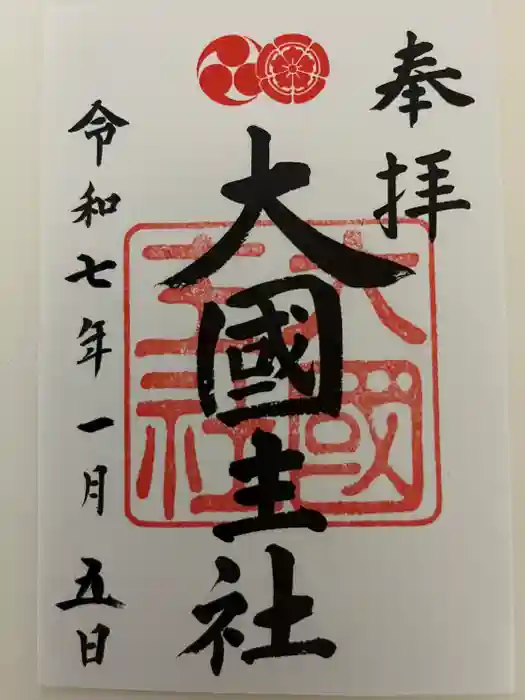 奉拝
大國主社
大國
主社
令和七年一月五日